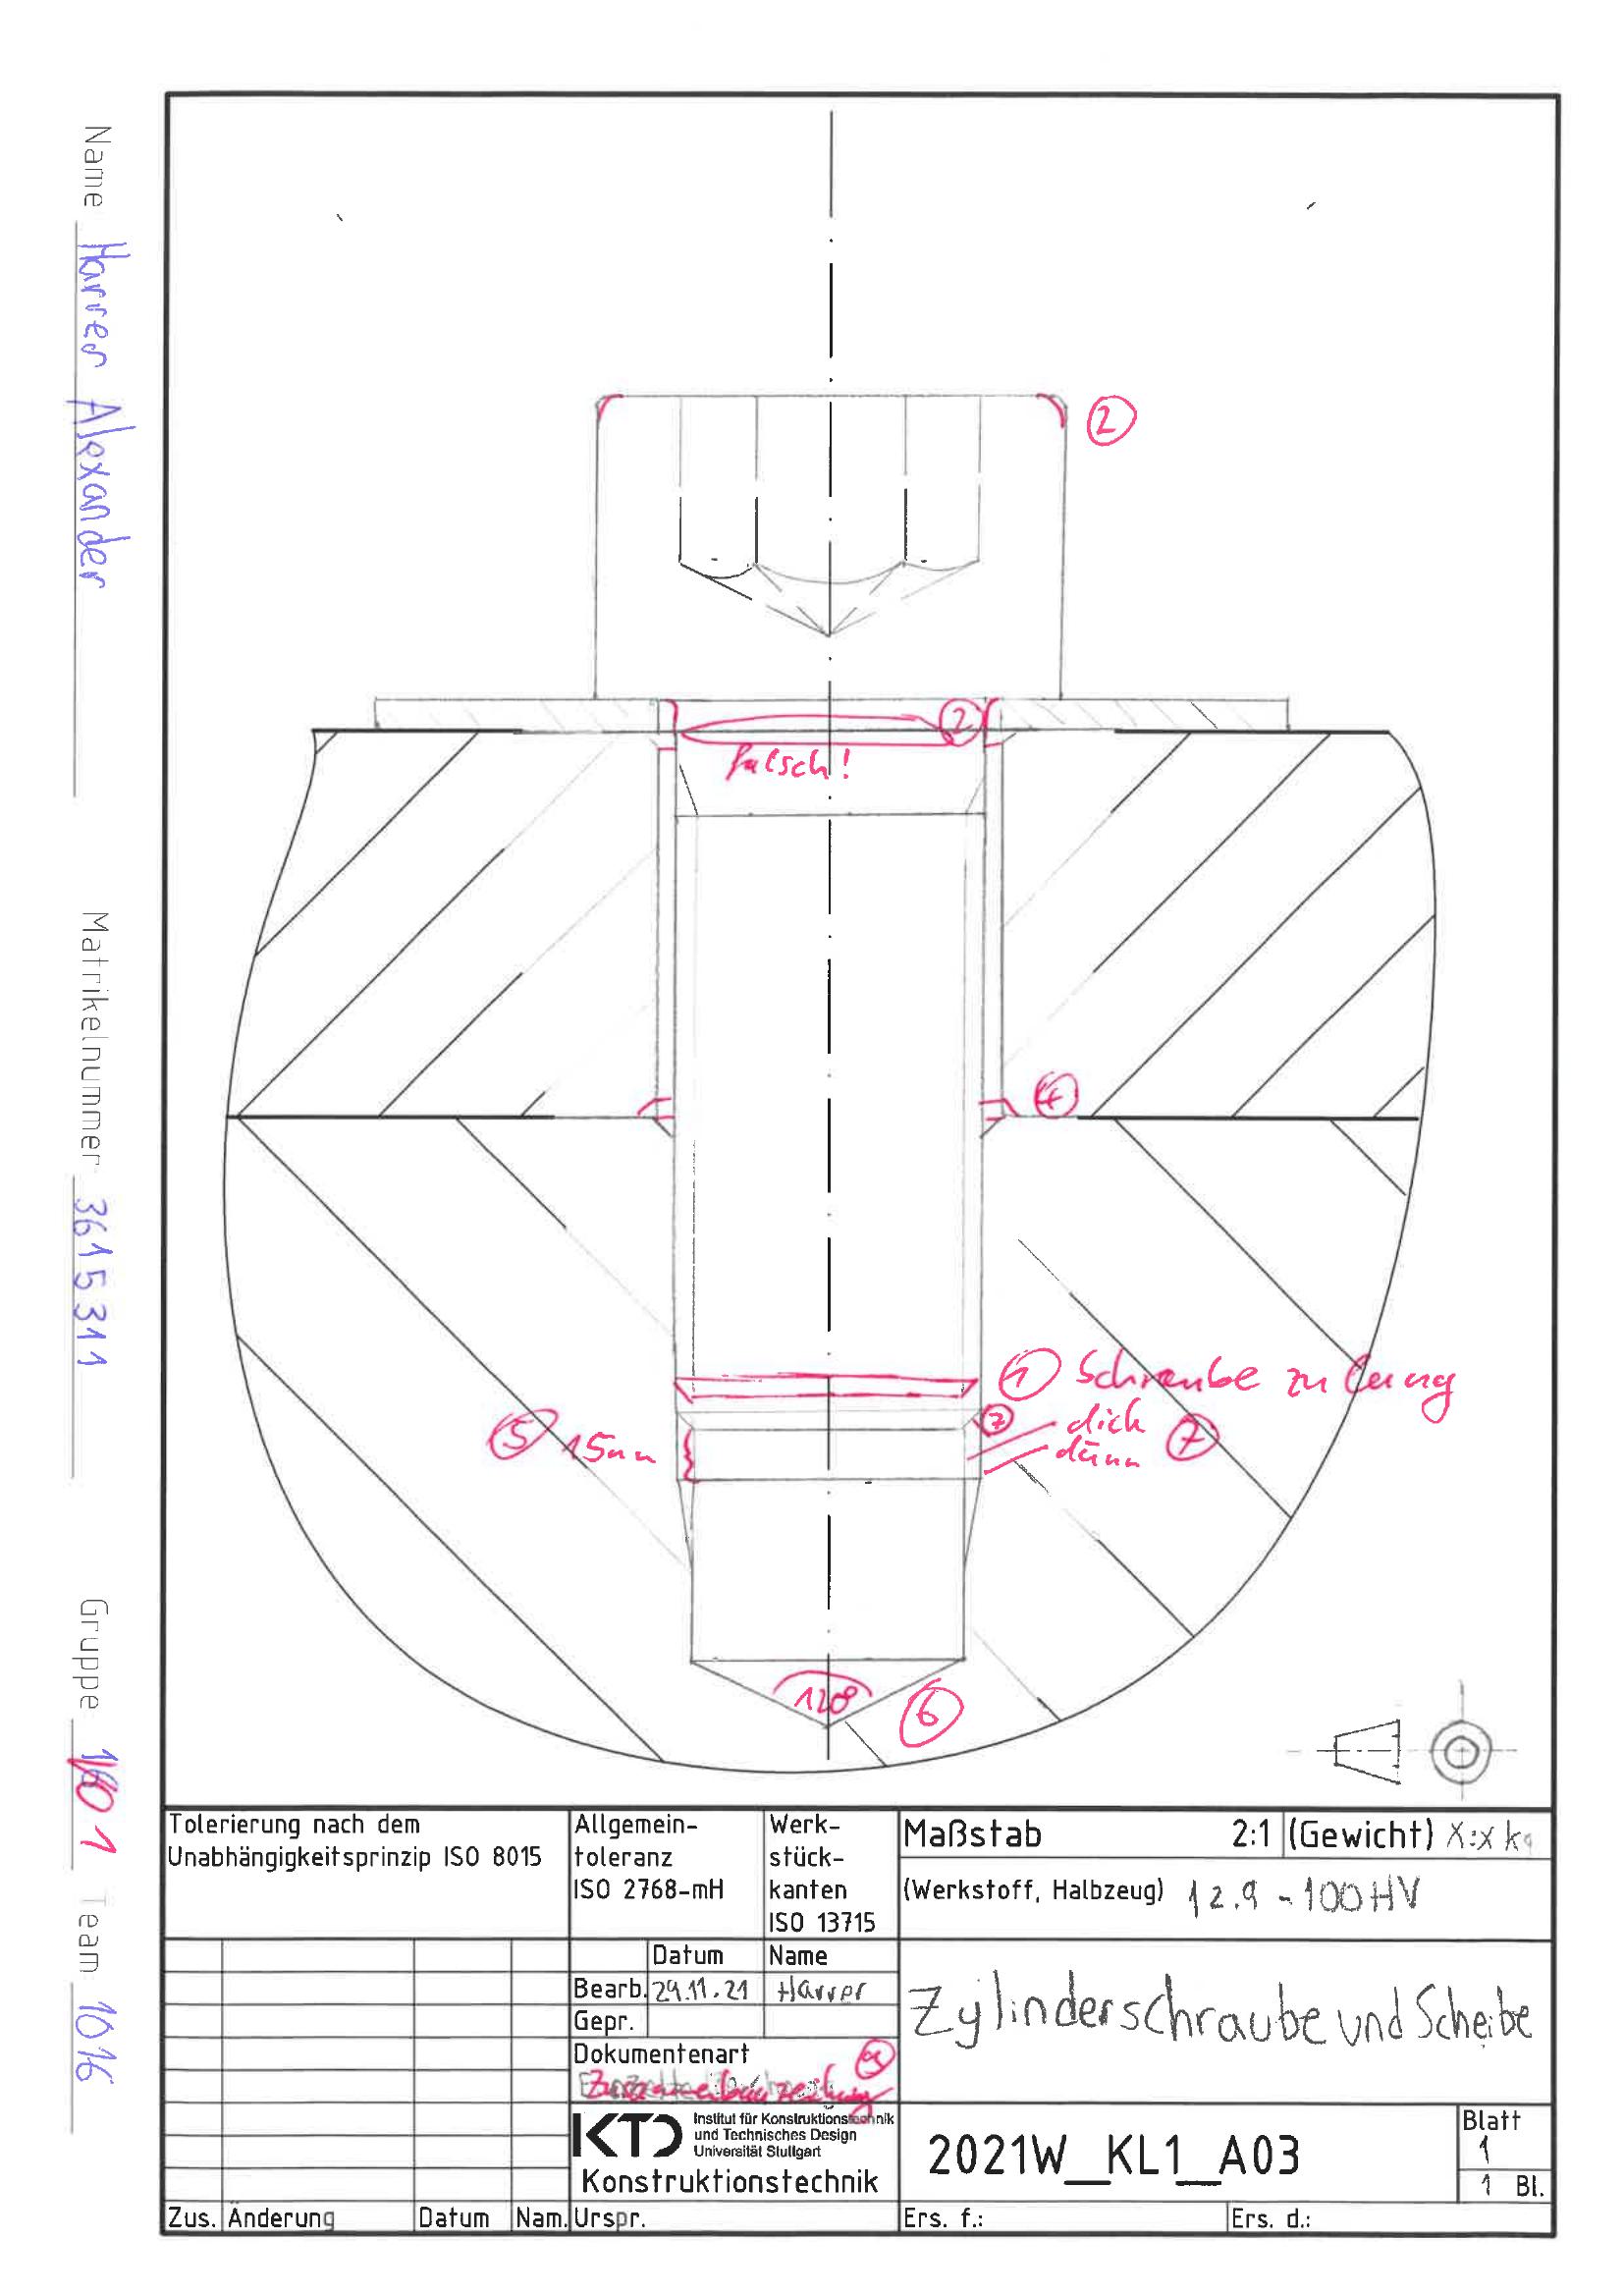 Name Harrer Alexander
Matrikelnummer 3615311
Gruppe 1601 Team 1016
2
2
falsch!
4
1 Schraube zu lang
7
dick
dünn 7
5 15mm
120° 6
Tolerierung nach dem
Unabhängigkeitsprinzip ISO 8015
Allgemein-
toleranz
ISO 2768-mH
Werk-
stück-
kanten
ISO 13715
Maßstab 2:1 (Gewicht) X:X kg
(Werkstoff, Halbzeug) 12.9 - 100HV
Datum Name
Bearb. 24.11.21 Harrer
Gepr.
Dokumentenart
Zylinderschraube und Scheibe
KTD Institut für Konstruktionstechnik
und Technisches Design
Universität Stuttgart
Konstruktionstechnik
2021W_KL1_A03
Blatt
1
1 Bl.
Zus. Änderung Datum Nam. Urspr. Ers. f.: Ers. d.: